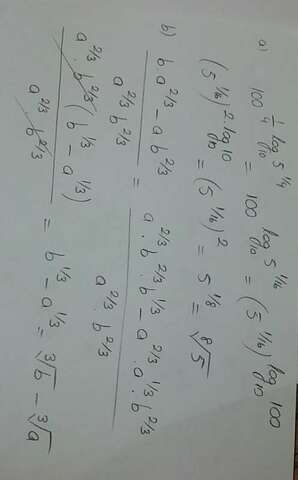 a) 100^{\frac{1}{4} log_{10} 5^{1/4}} = 100^{log_{10} 5^{1/16}} = (5^{1/16})^{log_{10} 100}
(5^{1/16})^{2·log_{10} 10} = (5^{1/16})^2 = 5^{1/8} = \sqrt[8]{5}
b) \frac{b a^{2/3} - a b^{2/3}}{a^{2/3} b^{2/3}} = \frac{a^{2/3}·b^{2/3}·b^{1/3} - a^{2/3}·a^{1/3}·b^{2/3}}{a^{2/3}·b^{2/3}}
\frac{a^{2/3}·b^{2/3}(b^{1/3} - a^{1/3})}{a^{2/3} b^{2/3}} = b^{1/3} - a^{1/3} = \sqrt[3]{b} - \sqrt[3]{a}